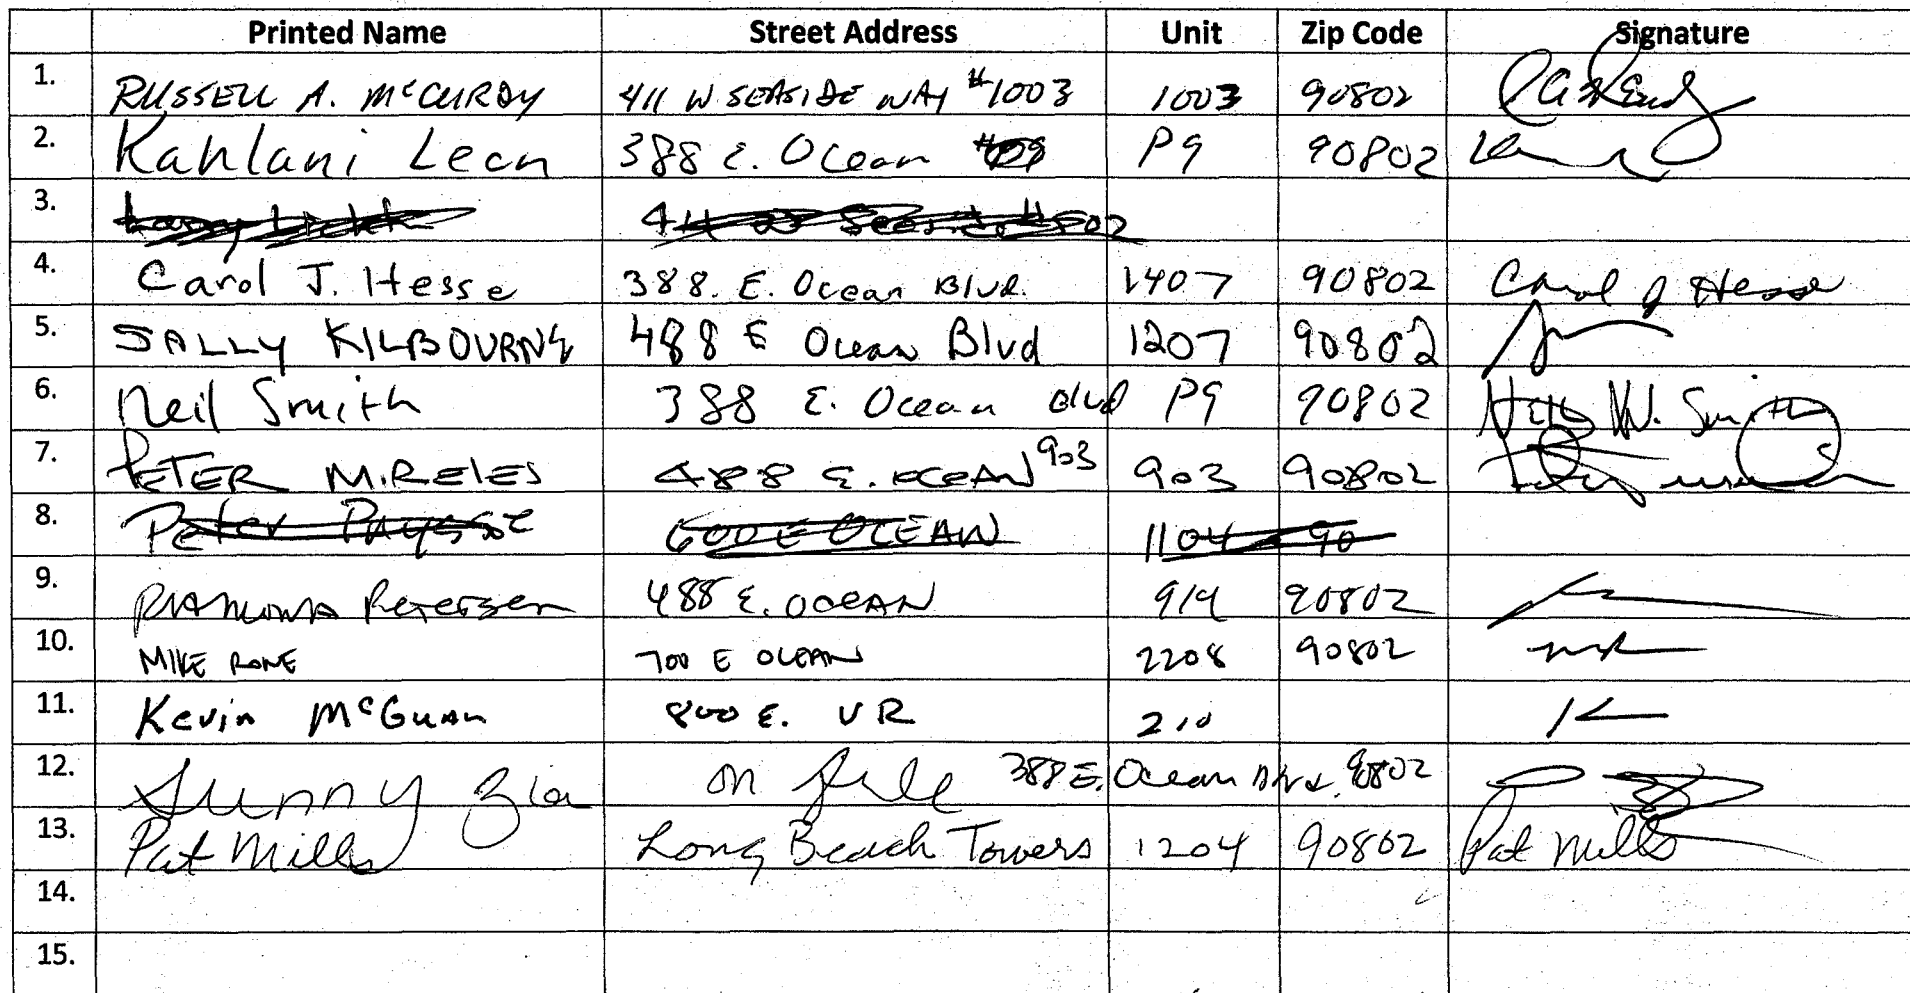 Printed Name Street Address Unit Zip Code Signature
1. RUSSELL A. McCURDY 411 W SEASIDE WAY #1003 1003 90802
2. Kahlani Leon 388 E. Ocean P9 90802
3.
4. Carol J. Hesse 388. E. Ocean Blvd. 1407 90802 Carol J Hesse
5. SALLY KILBOURNE 488 E Ocean Blvd 1207 90802
6. Neil Smith 388 E. Ocean Blvd P9 90802 W. Smith
7. PETER MIRELES 488 E. OCEAN 903 903 90802
8. Peter 600 E OCEAN 1104 90
9. RAMONA Petersen 488 E. OCEAN 914 90802
10. MIKE RONE 700 E OCEAN 2208 90802
11. Kevin McGuan 800 E. V R 210
12. Sunny Zia on file 388 E. Ocean Blvd. 90802
13. Pat Mills Long Beach Towers 1204 90802 Pat Mills
14.
15.